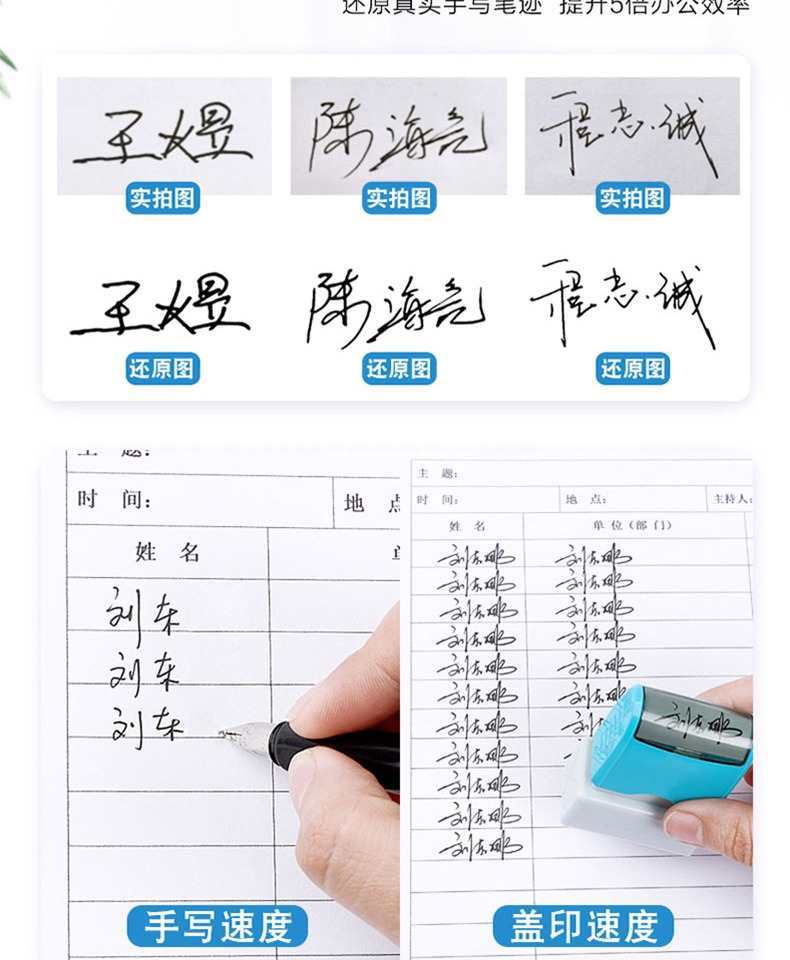 还原真实手写笔迹 提升5倍办公效率
王煜 陈海亮 程志诚
实拍图 实拍图 实拍图
王煜 陈海亮 程志诚
还原图 还原图 还原图
主 题:
时 间: 地 点
姓 名
刘东
刘东
刘东
手写速度
主 题:
时 间: 地 点: 主持人:
姓 名 单 位(部 门)
刘东娜 刘东娜
刘东娜 刘东娜
刘东娜 刘东娜
刘东娜 刘东娜
刘东娜 刘东娜
刘东娜 刘东娜
刘东娜 刘东
刘东娜
刘东娜
刘东娜
刘东娜
刘东娜
盖印速度